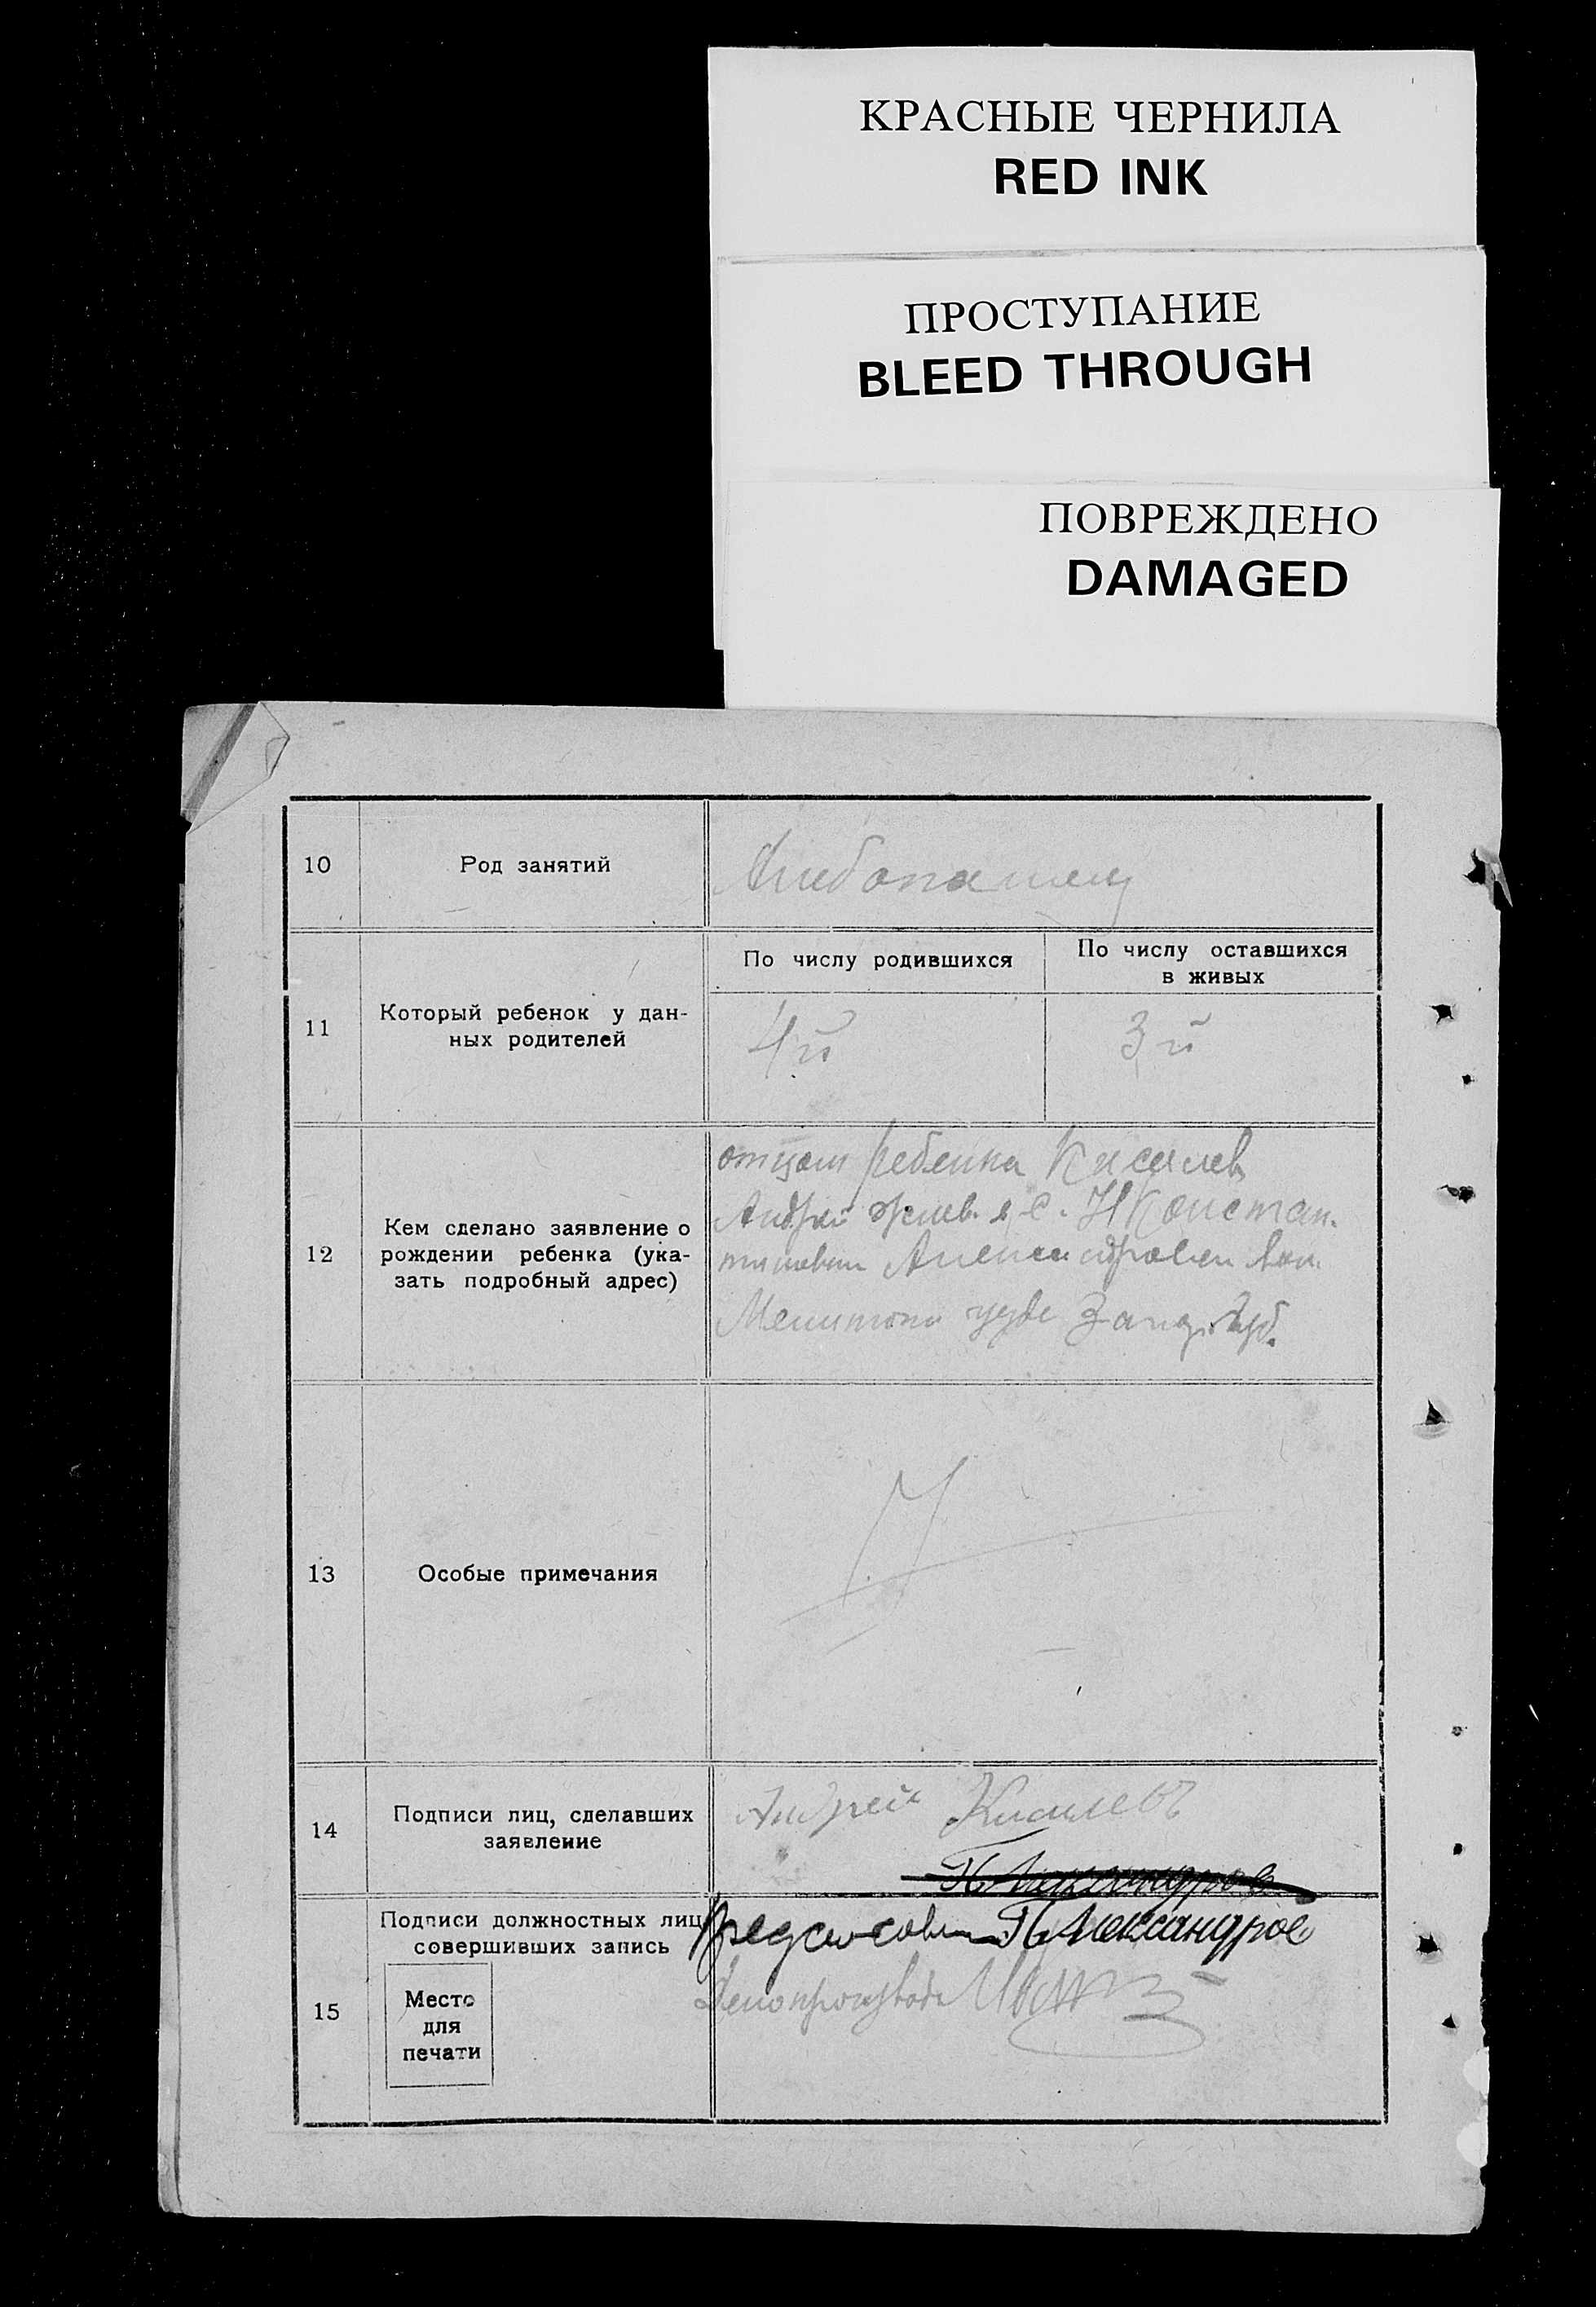 КРАСНЫЕ ЧЕРНИЛА
RED INK
ПРОСТУПАНИЕ
BLEED THROUGH
ПОВРЕЖДЕНО
DAMAGED
10
Род занятий
Хлебопашец
11
Который ребенок у дан-
ных родителей
По числу родившихся
4й
По числу оставшихся
в живых
3й
12
Кем сделано заявление о
рождении ребенка (ука-
зать подробный адрес)
отцом ребенка Киселев
Андрей жив. в с. Н Констан-
тиновки Александровки вол.
Мелитопо уезда Запор. Губ.
13
Особые примечания
14
Подписи лиц, сделавших
заявление
Андрей Киселевъ
15
Подписи должностных лиц
совершивших запись
Место
для
печати
Александров
Делопроизвод